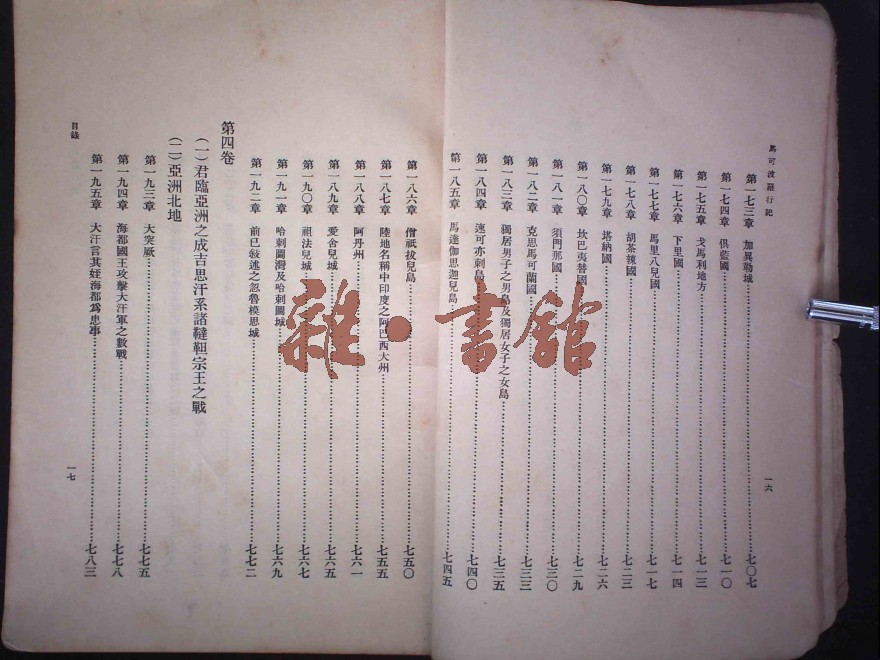 馬可波羅行記
第一七三章 加異勒城 七〇七
第一七四章 俱藍國 七一〇
第一七五章 戈馬利地方 七一三
第一七六章 下里國 七一四
第一七七章 馬里八兒國 七一七
第一七八章 胡茶辣國 七二三
第一七九章 塔納國 七二六
第一八〇章 坎巴夷替國 七二九
第一八一章 須門那國 七三〇
第一八二章 克思馬可蘭國 七三三
第一八三章 獨居男子之男島及獨居女子之女島 七三五
第一八四章 速可亦剌島 七四〇
第一八五章 馬達伽思迦兒島 七四五
一六
第一八六章 僧祇拔兒島 七五〇
第一八七章 陸地名稱中印度之阿巴西大州 七五五
第一八八章 阿丹州 七六一
第一八九章 愛舍兒城 七六五
第一九〇章 祖法兒城 七六七
第一九一章 哈剌圖灣及哈剌圖城 七六九
第一九二章 前已敍述之忽魯模思城 七七二
第四卷
(一)君臨亞洲之成吉思汗系諸韃靼宗王之戰
(二)亞洲北地
第一九三章 大突厥 七七五
第一九四章 海都國王攻擊大汗軍之數戰 七七八
第一九五章 大汗言其姪海都爲患事 七八三
目錄
一七
雜·書館